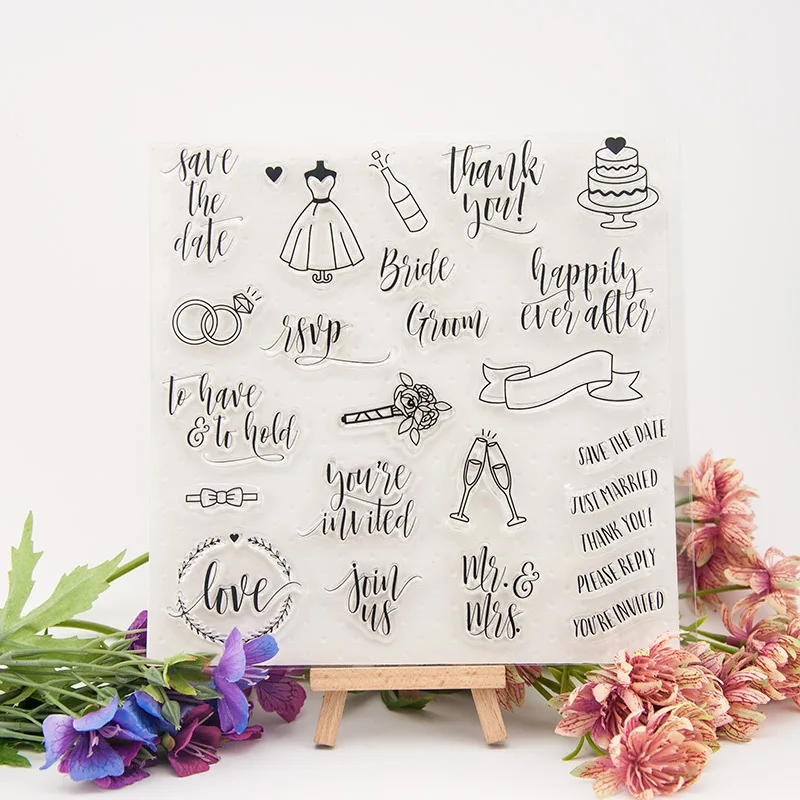 save
the
date
thank
you!
Bride
happily
ever after
rsvp
Groom
to have
& to hold
you're
invited
SAVE THE DATE
JUST MARRIED
THANK YOU!
PLEASE REPLY
YOU'RE INVITED
love
join
us
Mr. &
Mrs.